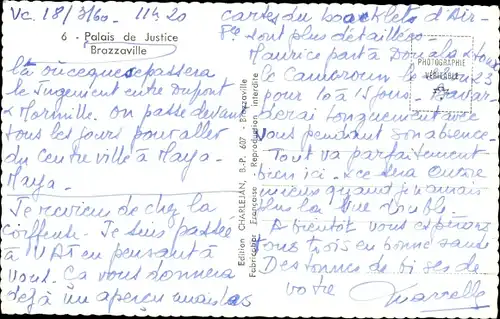 Vc. 18/3/60. 11h20
6 - Palais de Justice
Brazzaville
là où ce que se passera
le Jugement entre Dupont
& Mormille. On passe devant
tous les jours pour aller
du centre ville à Maya-
Maya.
Je reviens de chez la
coiffeuse. Je suis passée
à l'UAT en pensant à
vous. Ça vous donnera
déjà un aperçu mais les
cartes du booklets d'Air-
sont plus détaillées
Maurice part à Douala & tout
le Cameroun le 23
pour 10 à 15 jours. Bavar-
derai longuement avec
vous pendant son absence.
Tout va parfaitement
bien ici & ce sera encore
mieux quand je n'aurais
plus la vue
A bientôt vous espérons
tous trois en bonne santé
Des tonnes de bises de
votre Marcelle
PHOTOGRAPHIE
VÉRITABLE
Edition CHARLEJAN, B.-P. 607 - Brazzaville
Fabrication Française - Reproduction Interdite